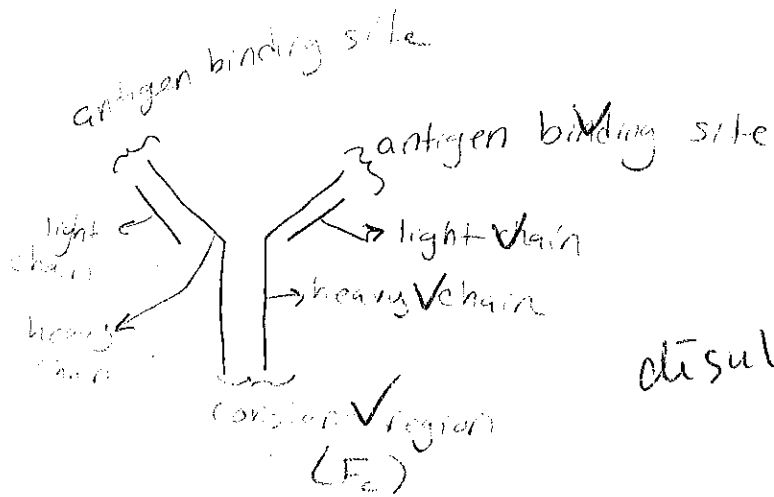 antigen binding site
antigen binding site
light
chain
light chain
heavy chain
heavy
chain
constant region
(Fc)
disul